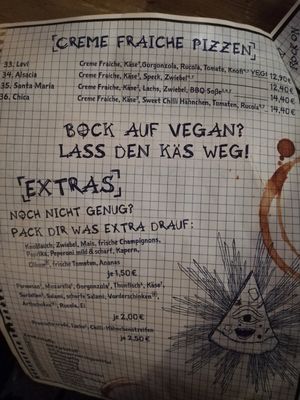 [CREME FRAICHE PIZZEN]
33. Levi Creme Fraiche, Käse¹, Gorgonzola, Rucola, Tomate, Knofi VEG! 12,90 €
34. Alsacia Creme Fraiche, Käse¹, Speck, Zwiebel 12,40 €
35. Santa Maria Creme Fraiche, Käse¹, Lachs, Zwiebel, BBQ-Soße 14,40 €
36. Chica Creme Fraiche, Käse¹, Sweet Chilli Hähnchen, Tomaten, Rucola 14,40 €
BOCK AUF VEGAN?
LASS DEN KÄS WEG!
[EXTRAS]
NOCH NICHT GENUG?
PACK DIR WAS EXTRA DRAUF:
Knoblauch, Zwiebel, Mais, frische Champignons,
Paprika, Peperoni mild & scharf, Kapern,
Oliven, frische Tomaten, Ananas
je 1,50 €
Parmesan, Mozzarella, Gorgonzola, Thunfisch, Käse,
Sardellen, Salami, scharfe Salami, Vorderschinken,
Artischocken, Rucola, Ei
je 2,00 €
Lachs, Chilli-Hähnchenstreifen
je 2,50 €